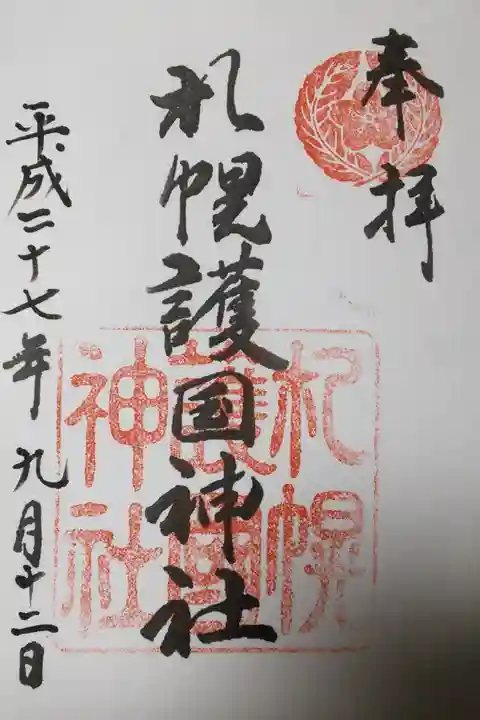 奉拝
札幌護国神社
札幌
護國
神社
平成二十七年九月十二日